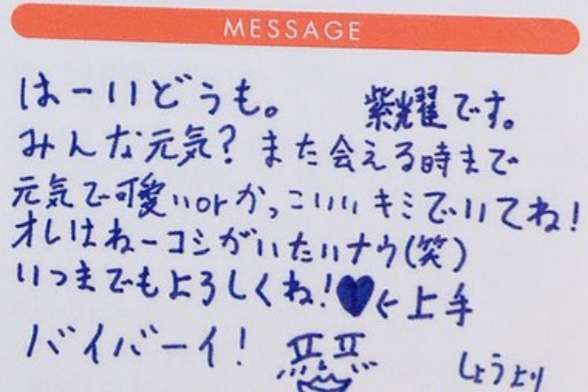 MESSAGE
はーいどうも。 紫耀です。
みんな元気？また会える時まで
元気で可愛いorかっこいいキミでいてね！
オレはねーコシがいたいナウ(笑)
いつまでもよろしくね！♥←上手
バイバーイ！
しょうより